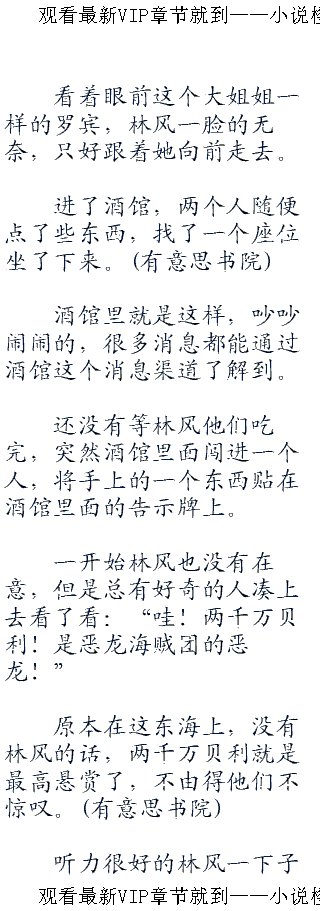 观看最新VIP章节就到——小说
看着眼前这个大姐姐一
样的罗宾，林风一脸的无
奈，只好跟着她向前走去。
进了酒馆，两个人随便
点了些东西，找了一个座位
坐了下来。(有意思书院)
酒馆里就是这样，吵吵
闹闹的，很多消息都能通过
酒馆这个消息渠道了解到。
还没有等林风他们吃
完，突然酒馆里面闯进一个
人，将手上的一个东西贴在
酒馆里面的告示牌上。
一开始林风也没有在
意，但是总有好奇的人凑上
去看了看：“哇！两千万贝
利！是恶龙海贼团的恶
龙！”
原本在这东海上，没有
林风的话，两千万贝利就是
最高悬赏了，不由得他们不
惊叹。(有意思书院)
听力很好的林风一下子
观看最新VIP章节就到——小说